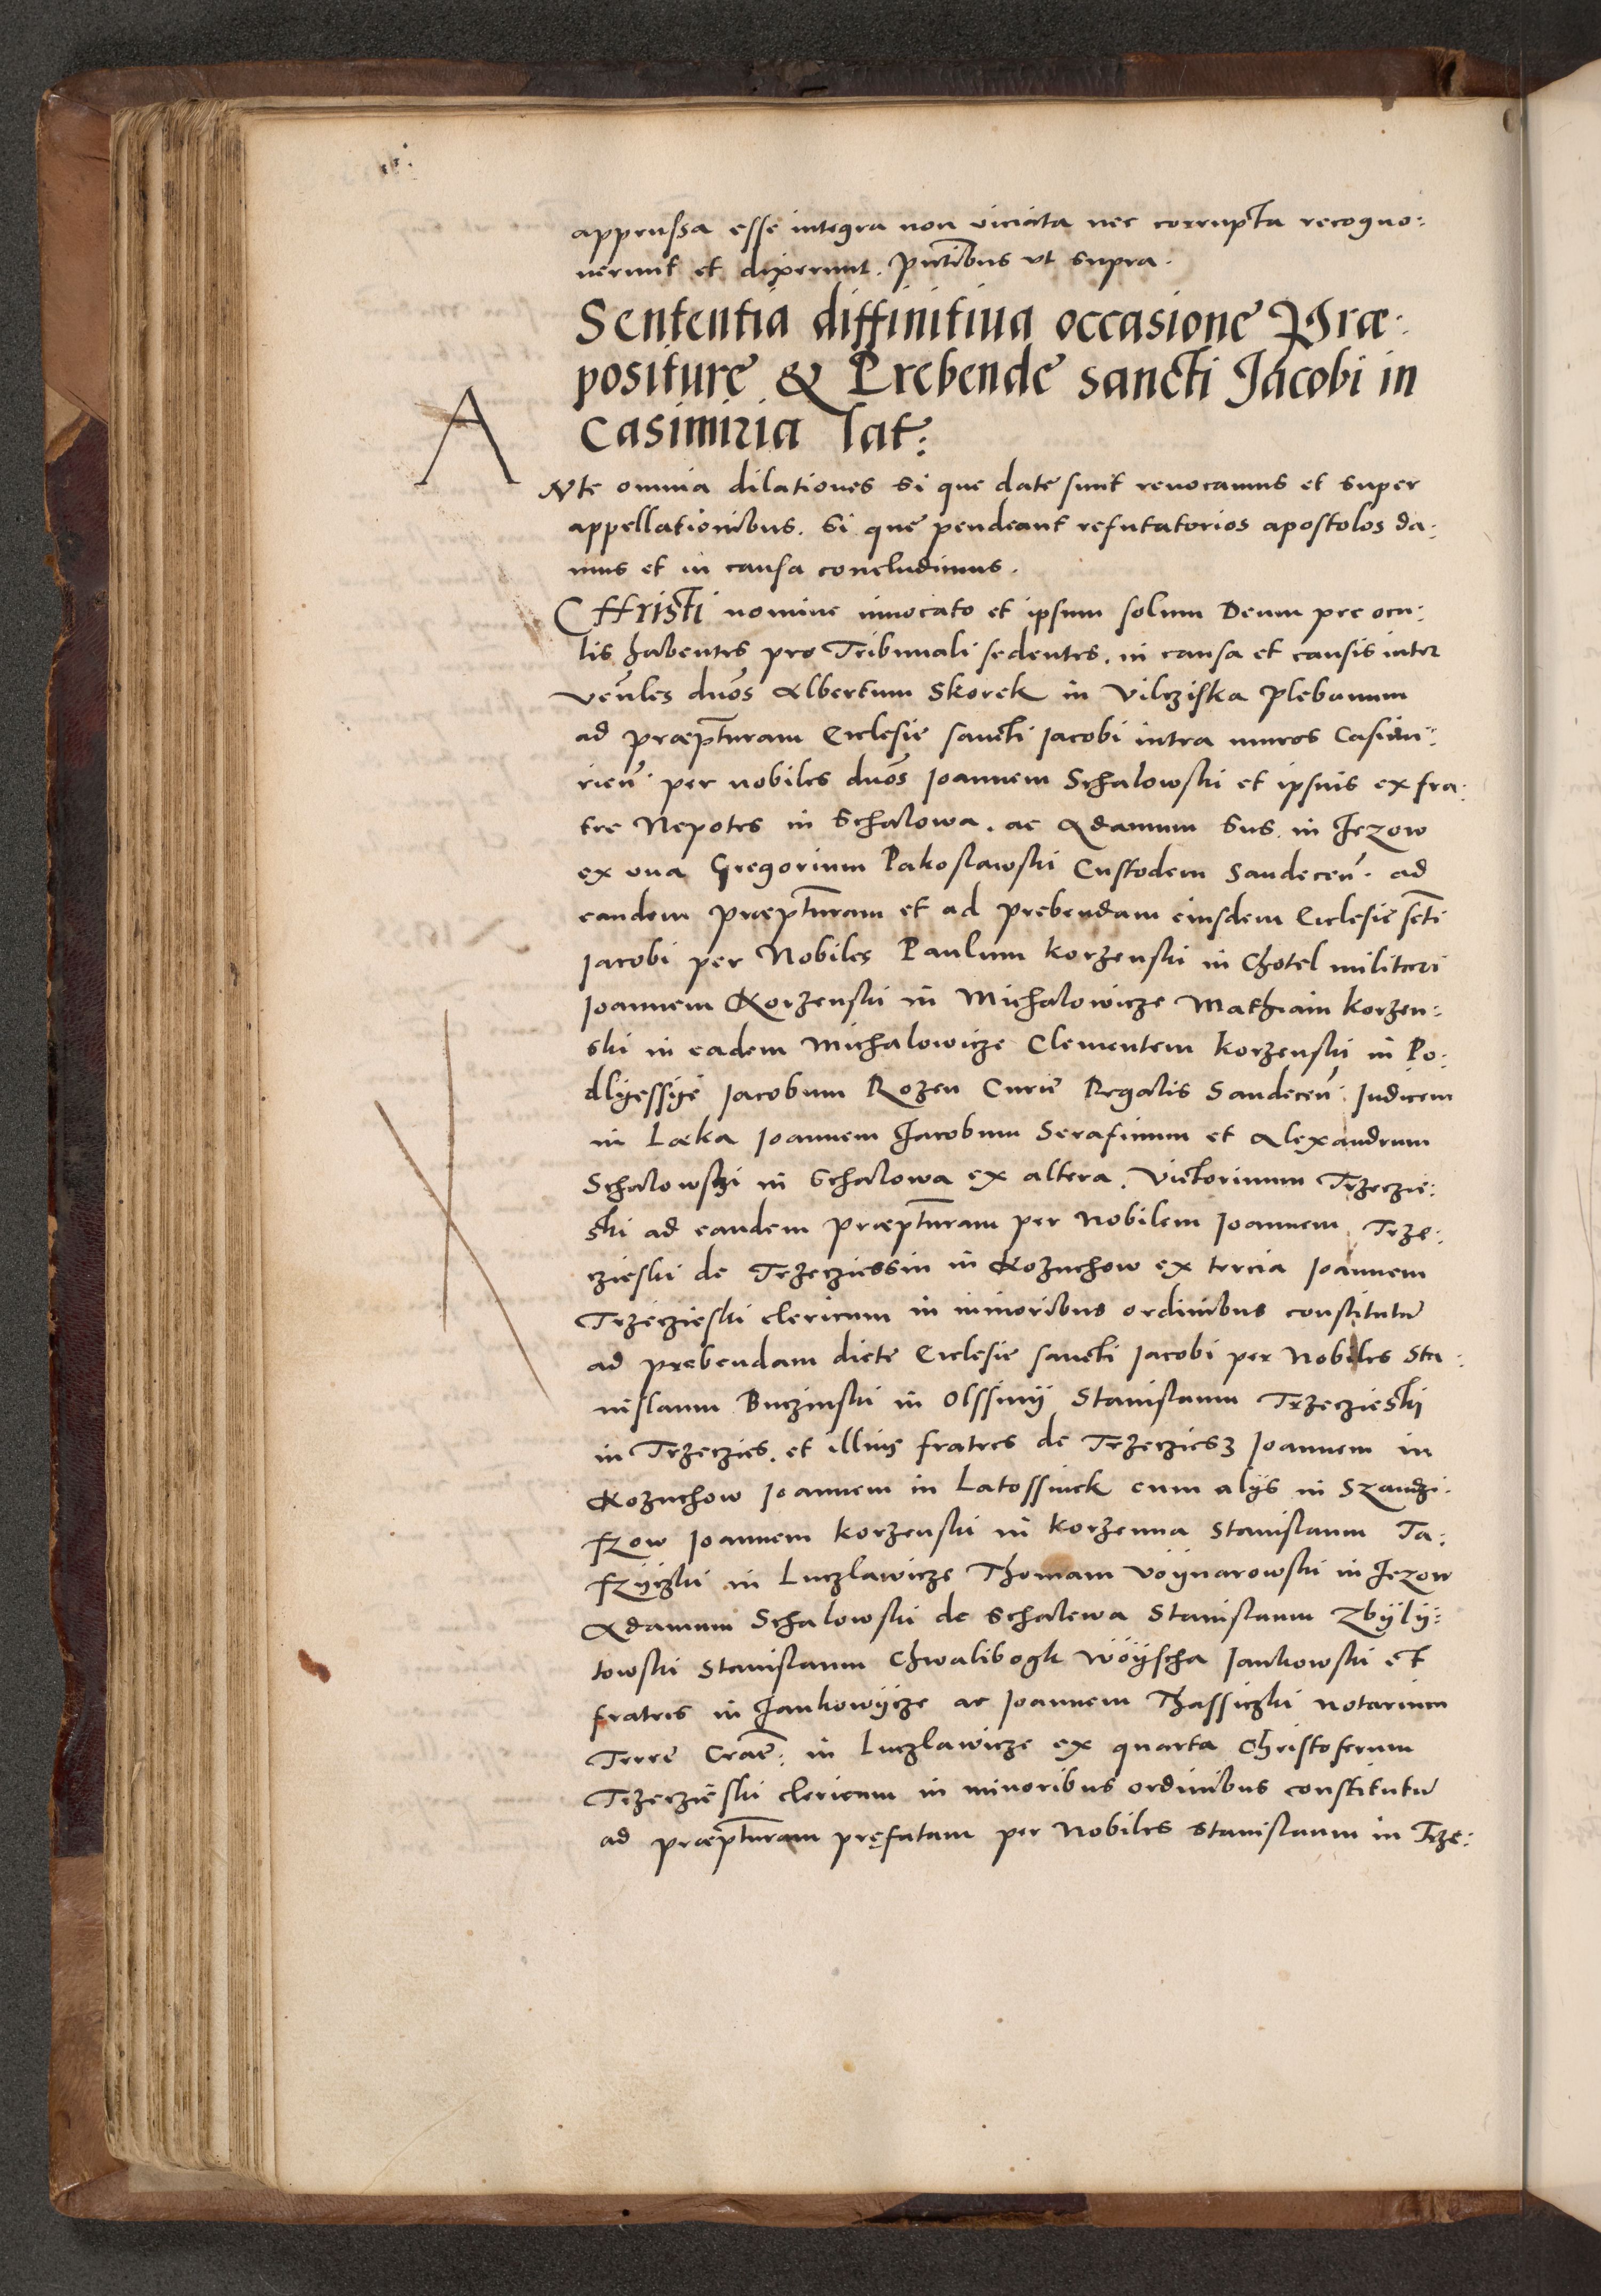 appressa esse integra non viciata nec corrupta recogno:
uerunt et dixerunt. pñtibus vt supra.
Sententia diffinitiua occasione Præ:
positure & Prebende sancti Jacobi in
Casimiria lat:
A
Nte omnia dilationes si que date sunt reuocamus et super
appellationibus. si que pendeant refutatorios apostolos da:
mus et in causa concludimus.
CHristi nomine inuocato et ipsum solum Deum pre ocu:
lis habentes pro Tribunali sedentes. in causa et causis inter
veñles dños Albertum Skorek in Vilcziska Plebanum
ad præpturam Ecclesie sancti Jacobi intra muros Casimi:
rieñ. per nobiles dños Joannem Schalowski et ipsius ex fra:
tre Nepotes in Schalowa. ac Adamum Sus. in Jezow
ex vna Gregorium Pakoslawski Custodem Sandeceñ. ad
eandem præpturam et ad prebendam eiusdem Ecclesie scti
Jacobi per Nobiles Paulum Korzenski in Chotel militari
Joannem Korzenski in Michalowicze Mathiam Korzen:
ski in eadem Michalowicze Clementem Korzenski in Po:
dlyessye Jacobum Rozen Curie Regalis Sandeceñ. Judicem
in Læka Joannem Jacobum Serafinum et Alexandrum
Schalowski in Schalowa ex altera. Victorinum Trzeczie:
ski ad eandem præpturam per Nobilem Joannem Trze:
czieski de Trzecziessin in Kozuchow ex tercia Joannem
Trzeczieski clericum in minoribus ordinibus constitutū
ad prebendam dicte Ecclesie sancti Jacobi per Nobiles Sta:
nislaum Buczinski in Olssiny Stanislaum Trzeczieskij
in Trzeczies. et illius fratres de Trzecziesz Joannem in
Kozuchow Joannem in Latossinek cum alijs in Szandzi:
szow Joannem Korzenski in Korzenna Stanislaum Ta:
szyczki in Luczlawicze Thomam Voynarowski in Jezow
Adamum Schalowski de Schalewa Stanislaum Zbyly:
towski Stanislaum Chwalibogk Woyscha Jankowski et
fratres in Jankowycze ac Joannem Thassiczki notarium
Terre Crac̃: in Luczlawicze ex quarta Christoferum
Trzeczieski clericum in minoribus ordinibus constitutū
ad præpturam pręfatam per Nobiles Stanislaum in Trze: